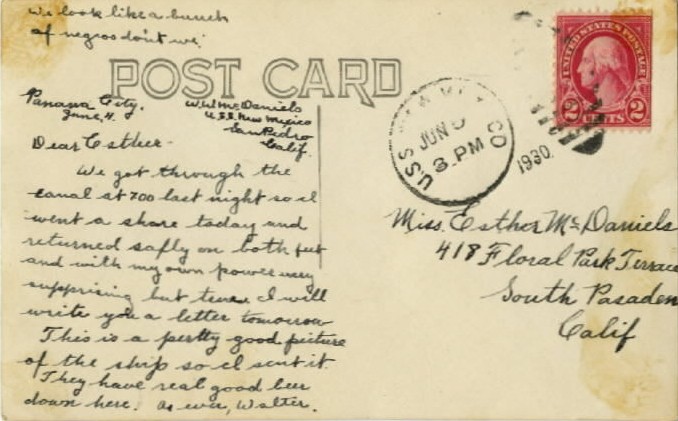 we look like a bunch
of negros dont we!
POST CARD
Panama City.
June, 4.
W.W. McDaniels
U.S.S. New Mexico
San Pedro
Calif.
Dear Esther-
We got through the
canal at 700 last night so I
went a shore today and
returned safly on both feet
and with my own power very
supprising but true. I will
write you a letter tomorrow
This is a pertty good picture
of the ship so I sent it.
They have real good beer
down here. As ever, Walter.
USS NEW MEXICO
JUN 5
3 PM
1930
UNITED STATES POSTAGE
2 CENTS 2
Miss. Esther McDaniels
418 Floral Park Terrace
South Pasaden
Calif